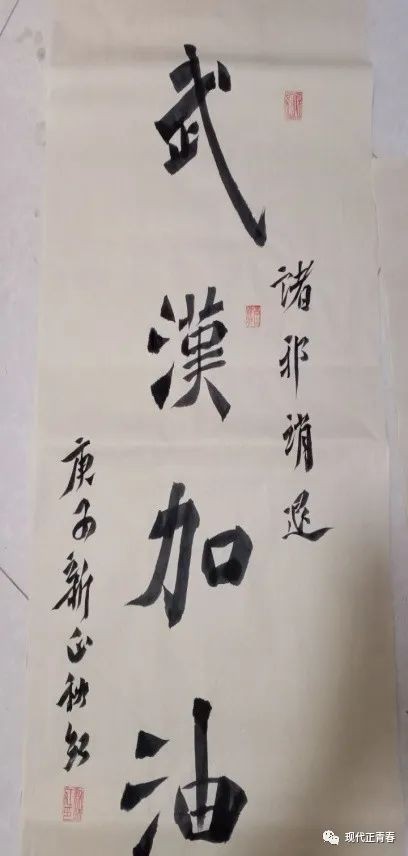 诸邪消退
武漢加油
庚子新正秋
现代正青春